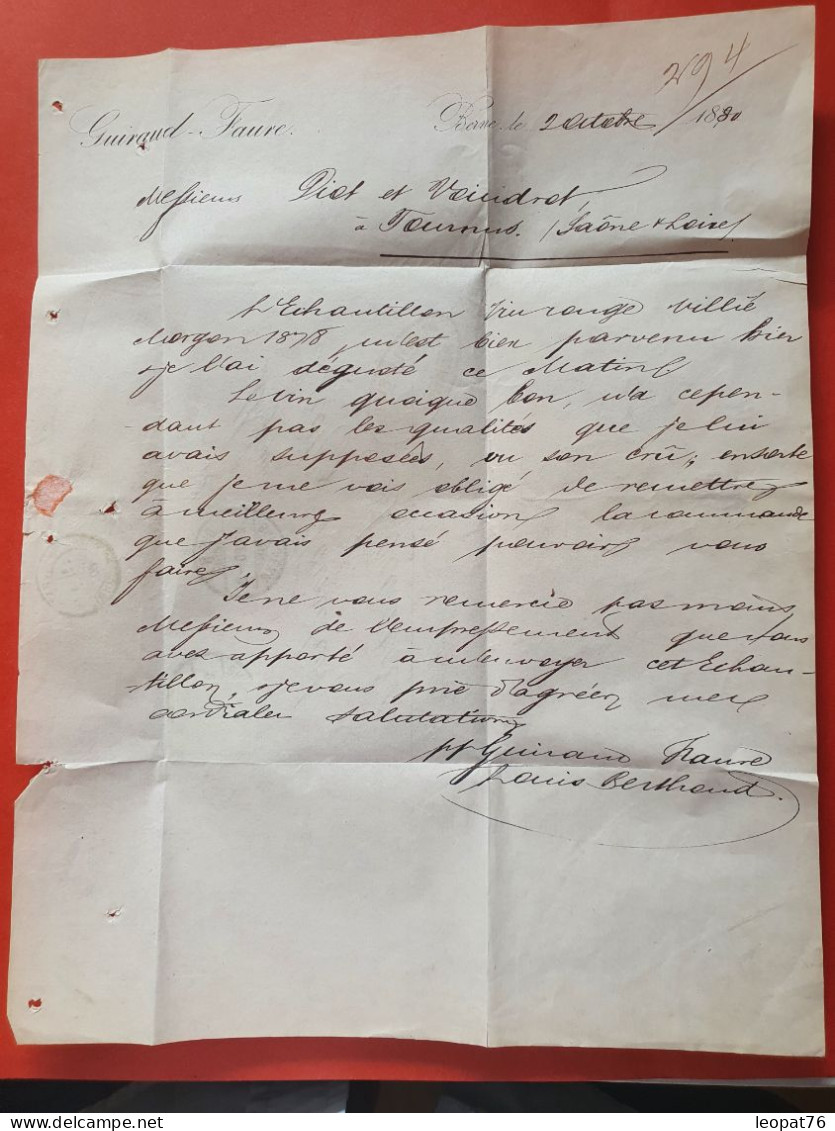 294
Guiraud-Faure. Berne, le 2 octobre 1880
Messieurs Piot et Voindrot,
à Tournus. (Saône & Loire)
L'Echantillon Vin rouge Villié
Morgon 1878, m'est bien parvenu hier
& je l'ai dégusté ce Matin.
Le vin quoique bon, n'a cepen-
-dant pas les qualités que je lui
avais supposées, vu son crû; ensorte
que je me vois obligé de remettre
à meilleure occasion la commande
que j'avais pensé pouvoir vous
faire.
Je ne vous remercie pas moins
Messieurs de l'empressement que vous
avez apporté à m'envoyer cet Echan-
tillon, & je vous prie d'agréer mes
cordiales salutations
pp Guiraud Faure
Louis Berthoud.
leopat76